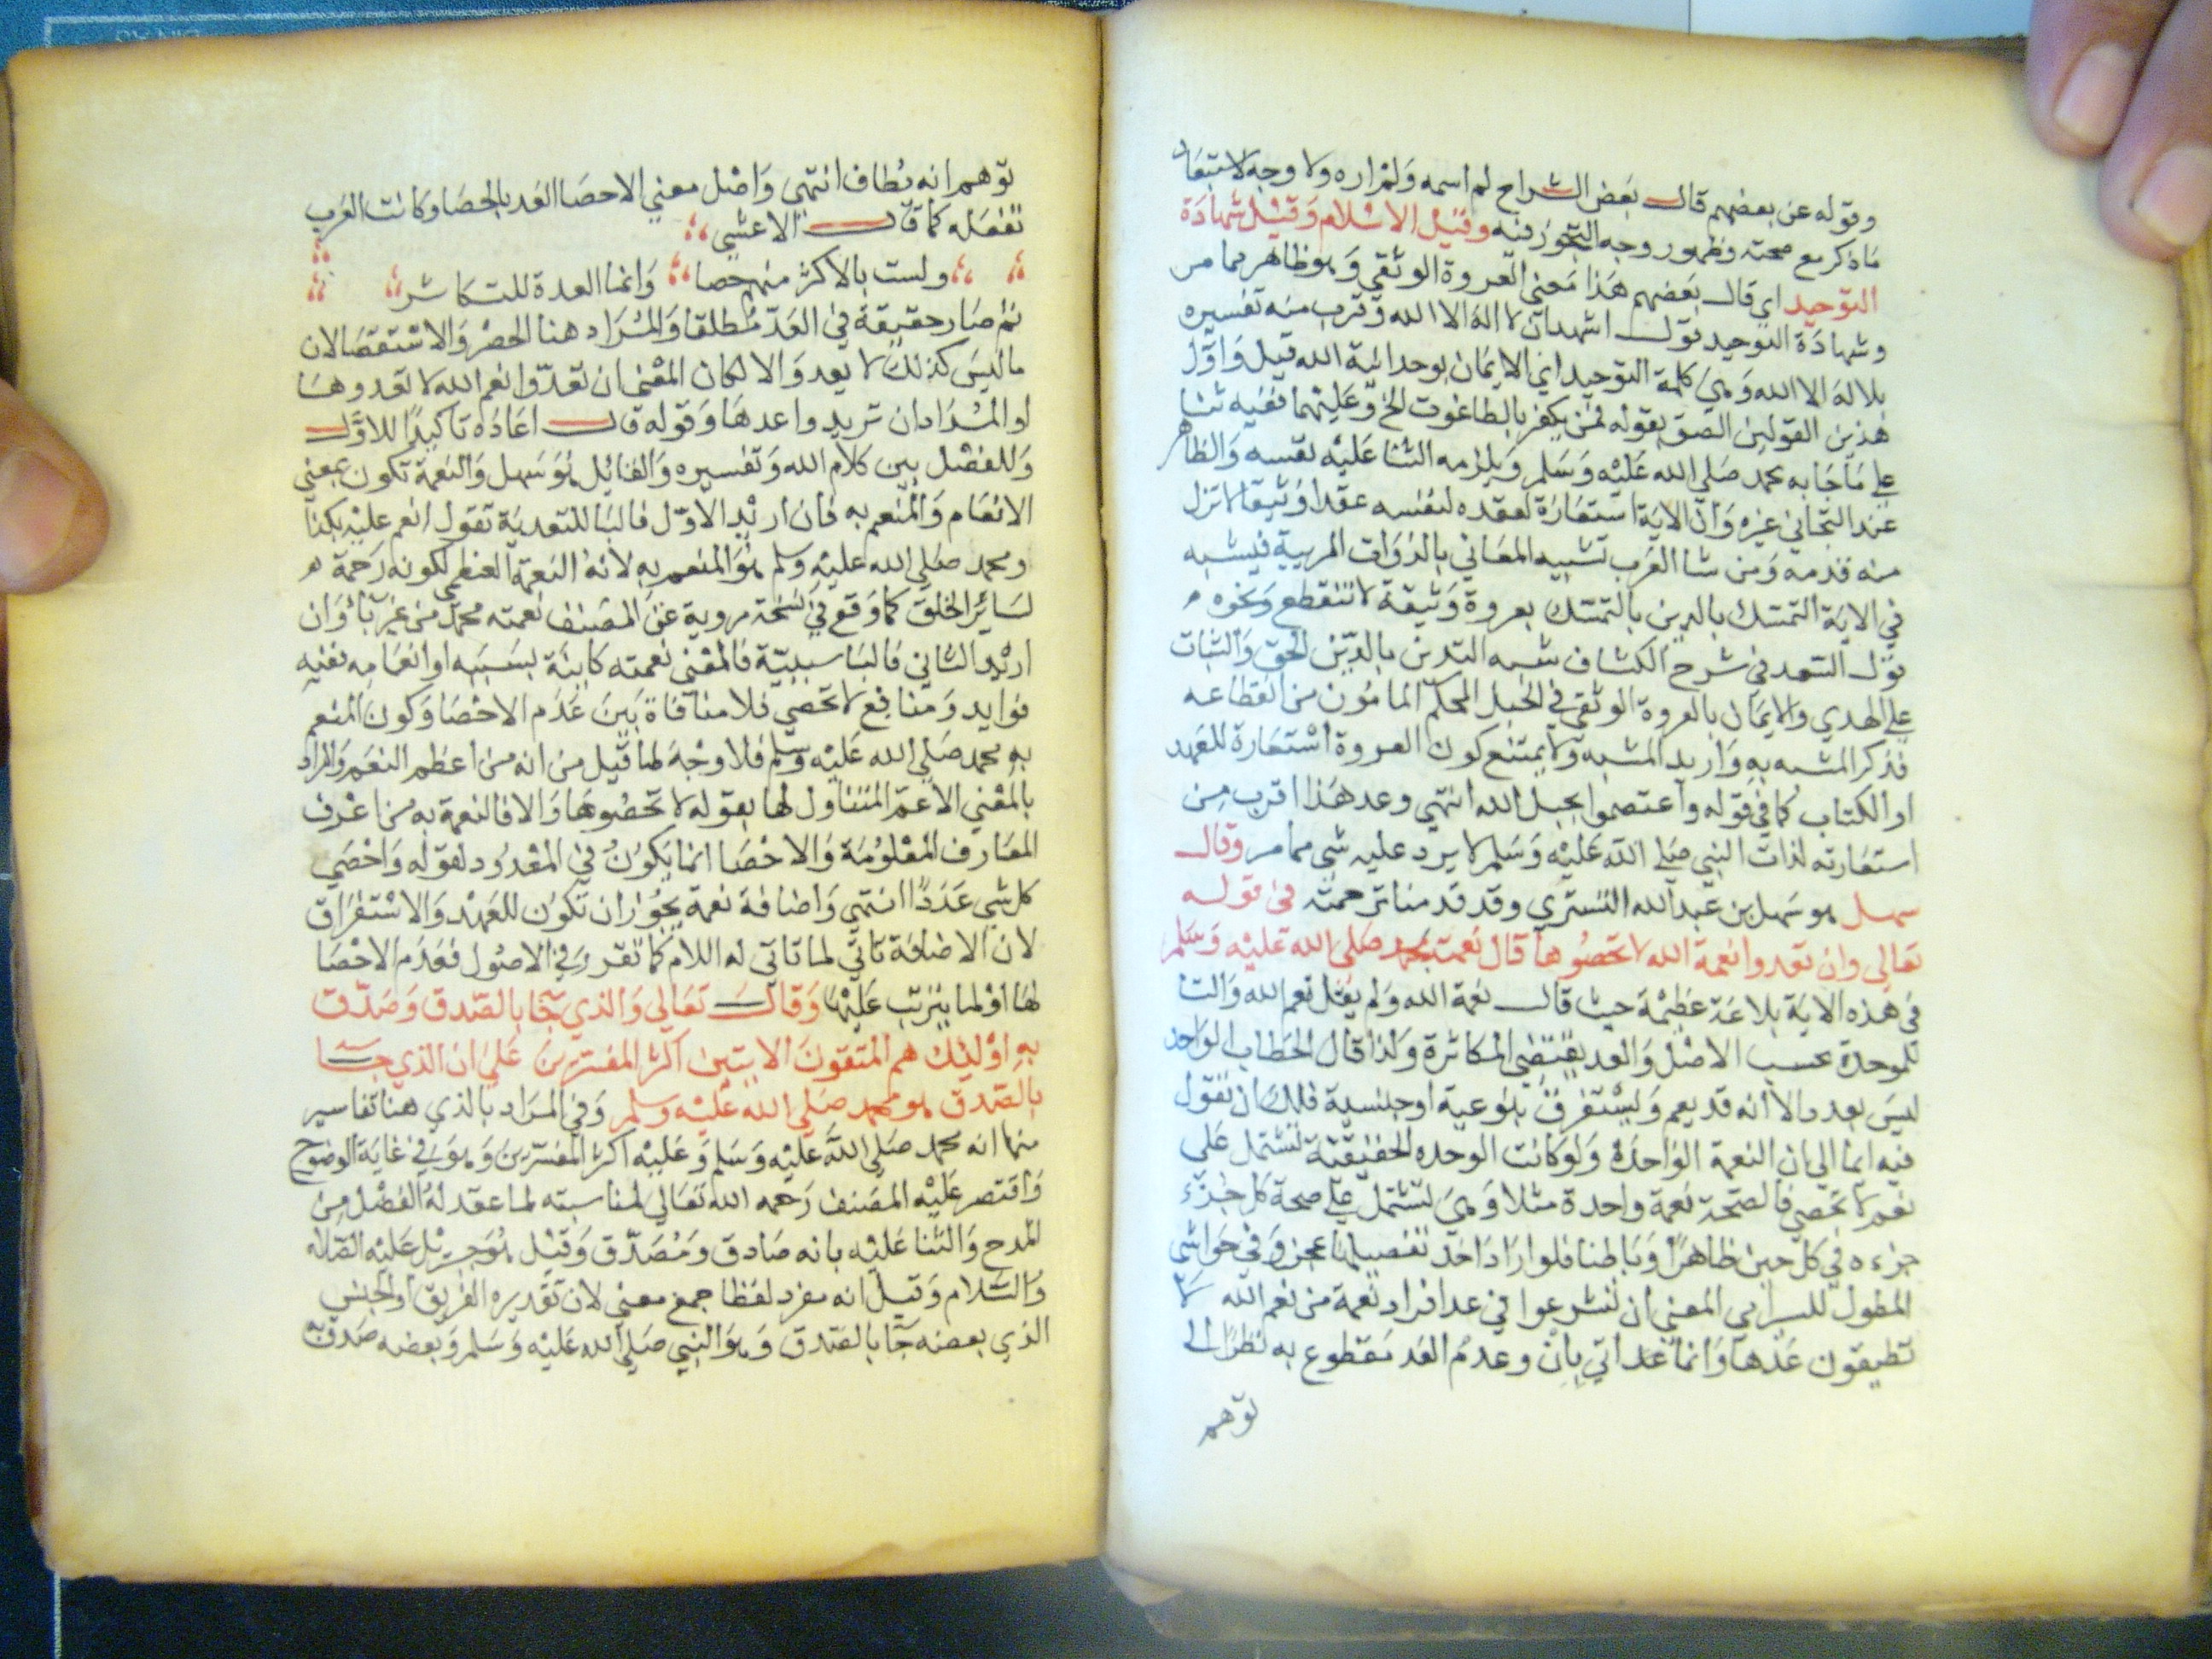 وقوله عن بعضهم قال بعض الشراح لم اسمه ولم اره ولا وجه لاستبعاد
ماذكر مع صحته وظهور وجه التجوز فيه وقيل الاسلام وقيل شهادة
التوحيد اي قال بعضهم هذا معنى العروة الوثقي وهو ظاهر مما مر
وشهادة التوحيد قول اشهد ان لا اله الا الله وقرب منه تفسيره
بلا اله الا الله وهي كلمة التوحيد اي الايمان بوحدانية الله قيل واول
هذين القولين الصق بقوله فمن يكفر بالطاغوت الخ وعليهما ففيه ثنا
علي ماجا به محمد صلي الله عليه وسلم ويلزمه الثنا عليه نفسه والظاهر
عند التجاني غيره وان الاية استعارة لعقده لنفسه عقدا وثيقا لا تزل
منه قدمه ومن شا العرب تشبيه المعاني بالذوات المريية فيشبه
في الاية التمسك بالدين بالتمسك بعروة وثيقة لا تنقطع ونحوه
قول السعد في شرح الكشاف شبه التدين بالدين الحق والثبات
علي الهدي والايمان بالعروة الوثقي في الحبل المحكم المامون من انقطاعه
فذكر المشبه به واريد المشبه ولا يمتنع كون العروة استعارة للعهد
او الكتاب كما في قوله واعتصموا بحبل الله انتهي وعد هذا اقرب من
استعارته لذات النبي صلي الله عليه وسلم لا يرد عليه شي مما مر وقال
سهل هو سهل بن عبد الله التستري وقد قدمنا ترجمته في قوله
تعالي وان تعدوا نعمة الله لا تحصوها قال نعمته بمحمد صلي الله عليه وسلم
في هذه الاية بلاغة عظيمة حيث قال نعمة الله ولم يقل نعم الله والتا
للوحدة بحسب الاصل والعد يقتضي المكاثرة ولذا قال الخطاب الواحد
ليس بعدد الا انه قد يعم ويستغرق بنوعية او جنسية فلك ان تقول
فيه ايما الي ان النعمة الواحدة ولو كانت الوحده الحقيقية تشتمل علي
نعم لا تحصي فالصحة نعمة واحدة مثلا وهي تشتمل علي صحة كل جزء
جزءه في كل حين ظاهرا وباطنا فلو اراد احد تفصيلها عجز وفي حواشي
المطول للسرامي المعني ان تشرعوا في عد افراد نعمة من نعم الله لا
تطيقون عدها وانما عد اتي بان وعدم العد مقطوع به نظرا الي
توهم
توهم انه يطاف انتهي واصل معني الاحصا العد بالحصا وكانت العرب
تفعله كما قال الاعشي
ولست بالاكثر منهم حصا وانما العدة للتكاثر
ثم صار حقيقة في العد مطلقا والمراد هنا الحصر والاستقصا لان
ماليس كذلك لا يعد والا لكان المعني ان تعدوا نعم الله لا تعدوها
او المراد ان تريدوا عدها وقوله قال اعاده تاكيدا للاول
وللفصل بين كلام الله وتفسيره والقائل هو سهل والنعمة تكون بمعني
الانعام والمنعم به فان اريد الاول فالبا للتعدية تقول انعم عليه بكذا
ومحمد صلي الله عليه وسلم هو المنعم به لانه النعمة العظمي لكونه رحمة
لسائر الخلق كما وقع في نسخة مروية عن المصنف نعمته محمد من غير با وان
اريد الثاني فالبا سببية فالمعني نعمته كائنة بسببه او انعامه ففيه
فوايد ومنافع لا تحصي فلا منافاة بين عدم الاحصا وكون المنعم
به محمد صلي الله عليه وسلم فلا وجه لما قيل من انه من اعظم النعم والمراد
بالمعني الاعم المتناول لها بقوله لا تحصوها والا فالنعمة به من اعرف
المعارف المعلومة والاحصا انما يكون في المعدود لقوله واحصي
كل شي عددا انتهي واضافة نعمة يجوز ان تكون للعهد والاستغراق
لان الاضافة تاتي لما تاتي له اللام كما تقرر في الاصول فعدم الاحصا
لها او لما يترتب عليها وقال تعالي والذي جا بالصدق وصدق
به اوليك هم المتقون الايتين اكثر المفسرين علي ان الذي جا
بالصدق هو محمد صلي الله عليه وسلم وفي المراد بالذي هنا تفاسير
منها انه محمد صلي الله عليه وسلم وعليه اكثر المفسرين وهو في غاية الوضوح
واقتصر عليه المصنف رحمه الله تعالي لمناسبته لما عقد له الفصل من
المدح والثنا عليه بانه صادق ومصدق وقيل هو جبريل عليه الصلاه
والسلام وقيل انه مفرد لفظا جمع معني لان تقديره الفريق او الجنس
الذي بعضه جا بالصدق وهو النبي صلي الله عليه وسلم وبعضه صدق